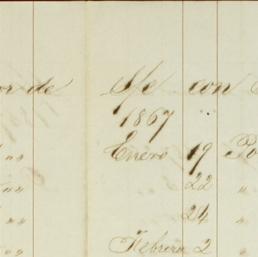 or de S/c con
1867
Enero 19 Po
" " 22 "
" " 24 "
Febrero 2 "